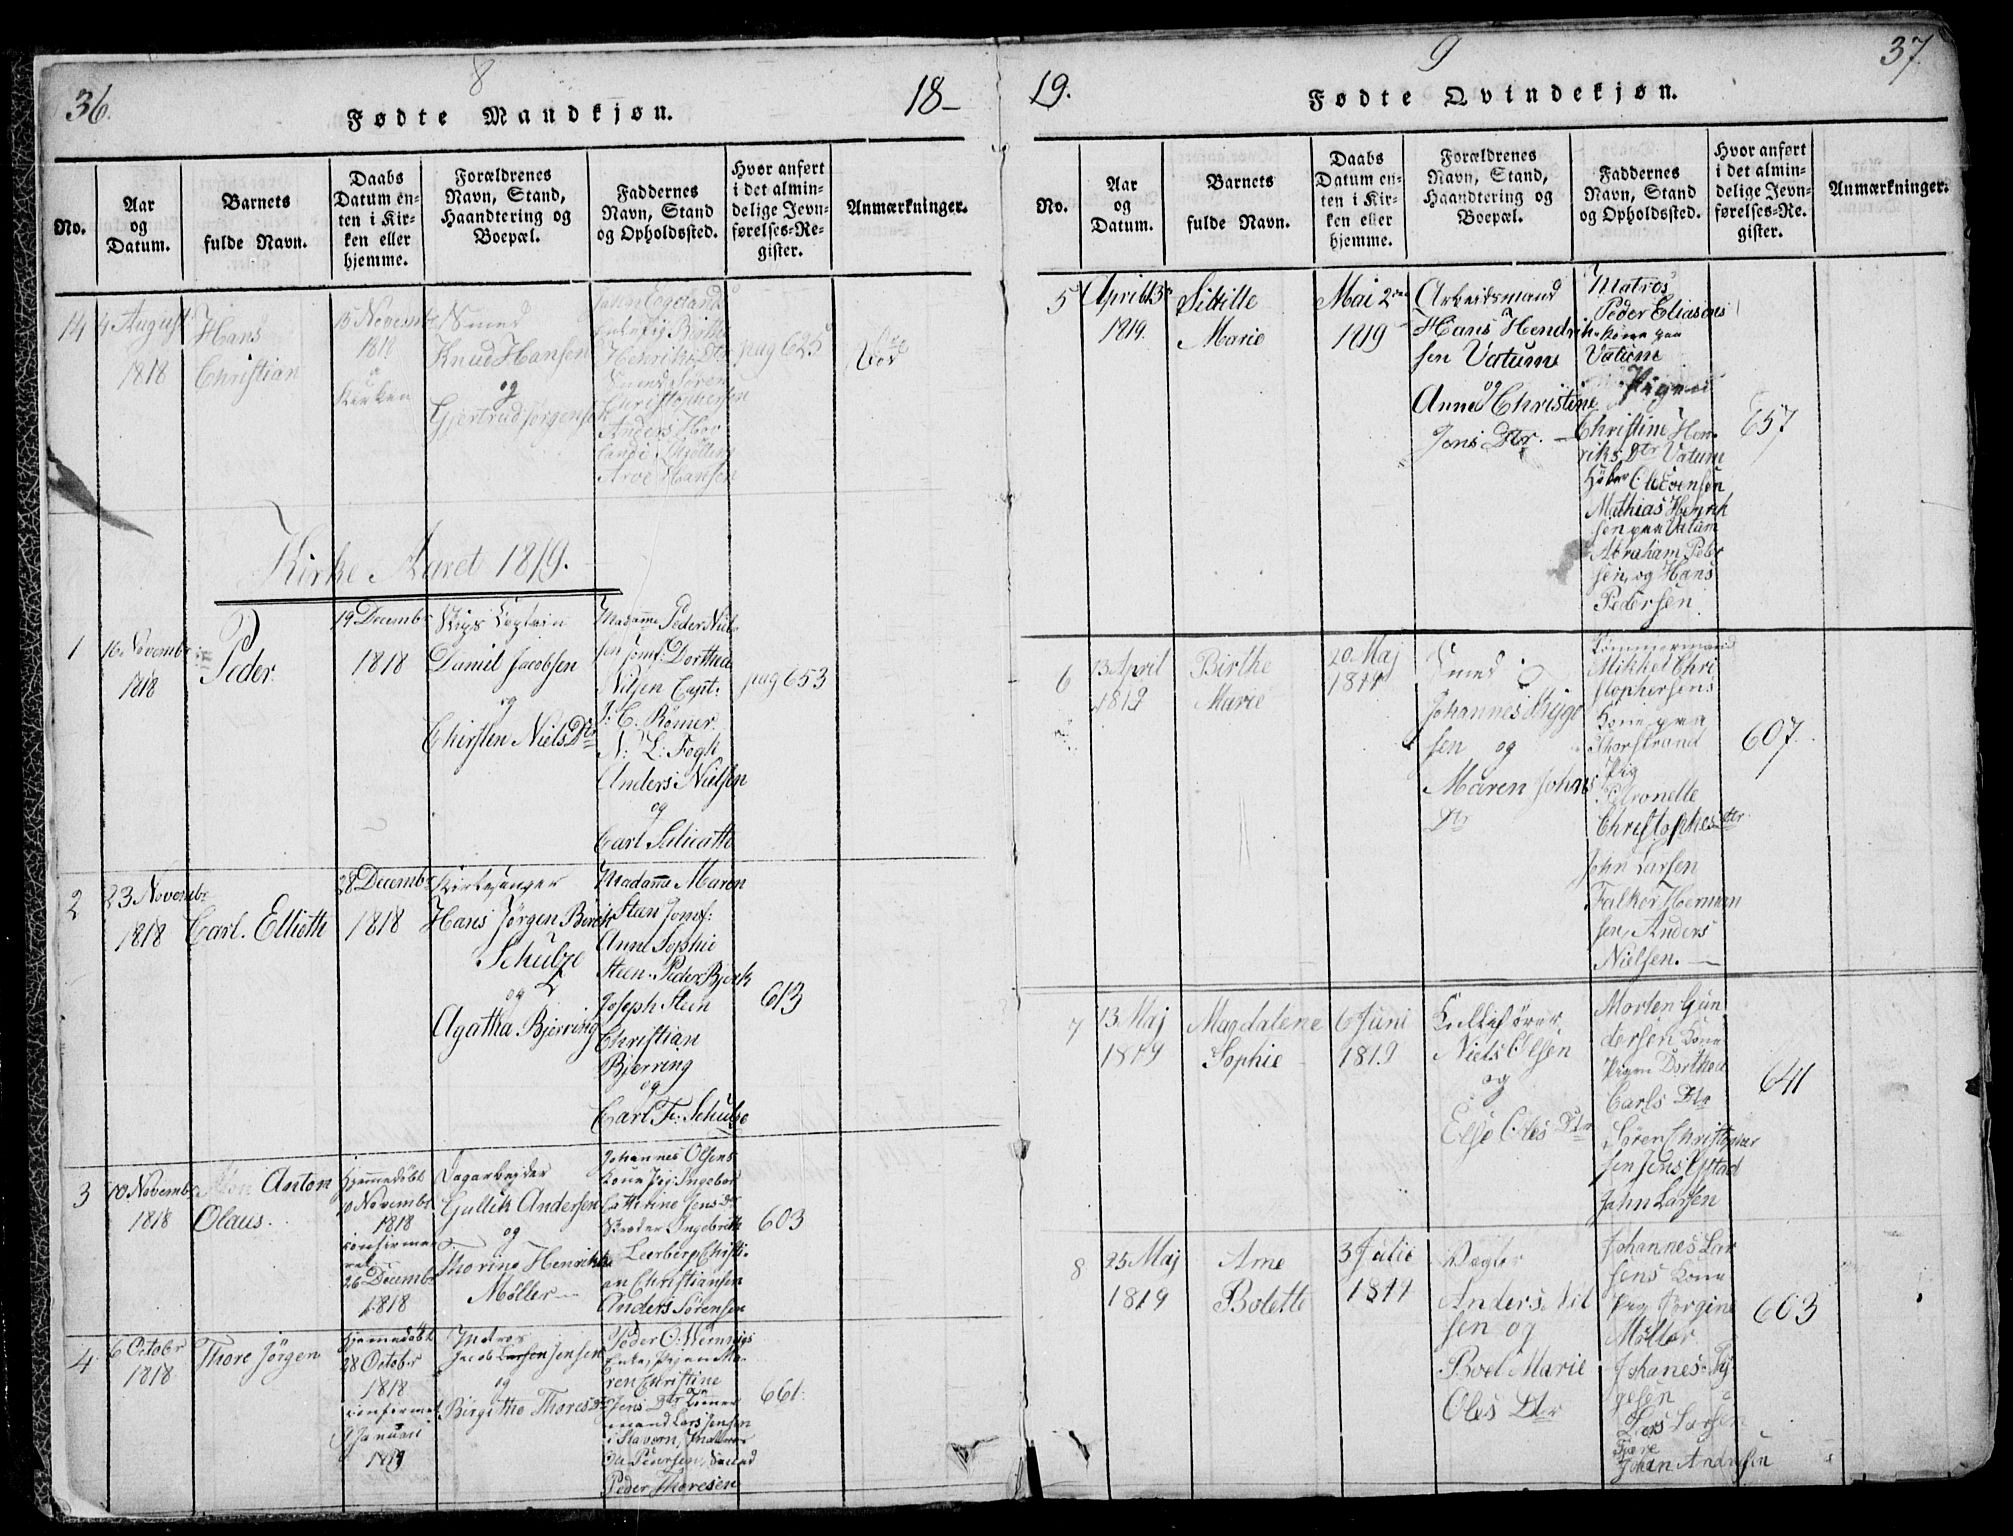 36.
8
Fødte Mandkjøn.
18-
No.
Aar
og
Datum.
Barnets
fulde Navn.
Daabs
Datum en-
ten i Kir-
ken eller
hjemme.
Forældrenes
Navn, Stand,
Haandtering og
Boepæl.
Faddernes
Navn, Stand
og Opholdssted.
Hvor anført
i det almin-
delige Jevn-
førelses-Re-
gister.
Anmærkninger.
14
4 August
1818
Hans
Christian
15 Novembr
1818
i
Kirken
Smed
Knud Hansen
og
Gjertrud Jørgens
Birthe
Henriks Dtr
Smed Søren
Christophersen
Anders
Arve Hansen
pag 625
Kirke Aaret 1819.
1
16 Novembr
1818
Peder
19 Decembr
1818
Skips Captain
Daniel Jacobsen
og
Chirsten Niels Dtr
Madamme Peder Niel-
sen Jomf: Dorthea
Nilsen Capt:
J: C. Römer
N: L: Fogh
Anders Nielsen
og
Carl
pag 653
2
23 Novembr
1818
Carl. Ellioth
28 Decembr
1818
Kirkesanger
Hans Jørgen
Schulze
og
Agatha Bjerring
Madame Maren
Steen Jomf:
Anne Sophie
Steen. Peder Bjerk
Joseph Steen
Christian
Bjerring
og
Carl Fr: Schulze
613
3
10 Novembr
1818
Anton
Olaus.
Hjemmedøbt
10 Novembr
1818
confirme
ret
26 Decembr
1818
Dagarbejder
Gullik Andersen
og
Thorine Henrikke
Møller
Johannes Olsens
Kone Pig: Ingebor
Cathrine Jens Dtr
Ingebrikt
Leerberg, Christi-
an Christiansen
Anders Sørensen
603
4
6 Octobr
1818
Thore Jörgen
Hjemmedøbt
28 Octobr
1818
confirmet
9 Januari
1819
Matros
Jacob Jensen
og
Birgithe Thores Dtr
Peder O. Wennigs
Enke, Pigen Ma-
ren Christine
Jens Dtr Tømer
mand Lars Jensen
i Stavern, Matros
Ole Peersen, Smed
Peder Thoresen
661.
19.
9
Fødte Qvindekjøn.
37.
No.
Aar
og
Datum.
Barnets
fulde Navn.
Daabs
Datum en-
ten i Kir-
ken eller
hjemme.
Forældrenes
Navn, Stand,
Haandtering og
Boepæl.
Faddernes
Navn, Stand
og Opholdssted.
Hvor anført
i det almin-
delige Jevn-
førelses-Re-
gister.
Anmærkninger.
5
April 13
1819.
Sibille
Marie
Mai 2den
1819
Arbeidsmand
Hans Hendrik-
sen Vatum
og
Anne Christine
Jens Dtr.
Matros
Peder Eliasens
Kone paa
Vatum
Pigen
Christine Hen-
riks Dtr Vatum
Ole Svensen
Mathias Henrik
sen paa Vatum
Abraham Peder
sen, og Hans
Pedersen
657
6
13 April
1819
Birthe
Marie
20 Maj
1819
Smed
Johannes Thyge
sen og
Maren Johns
Dtr
Tømmermand
Mikkel Chri
stophersens
Kone paa
Thorstrand
Pig
Petronelle
Christophes Dtr
John Larsen
Falkor Herman
sen, Anders
Nielsen.
607.
7
13 Maj
1819
Magdalene
Sophie
6 Juni
1819
Niels Olsen
og
Else Oles Dtr
Morten Gun
dersen Kone
Pigen Dorthea
Carls Dtr
Søren Christopher
sen Jens Ystad
John Larsen
641
8
25 Maj
1819
Arne
Bolette
3 Julie
1819
Vægter
Anders Nil
sen og
Boel Marie
Oles Dtr
Johannes Lar
sens Kone
Pig Jörgine
Möller
Johanes Ty
gesen
Lars Larsen
Fjære
Johan Andersen
603